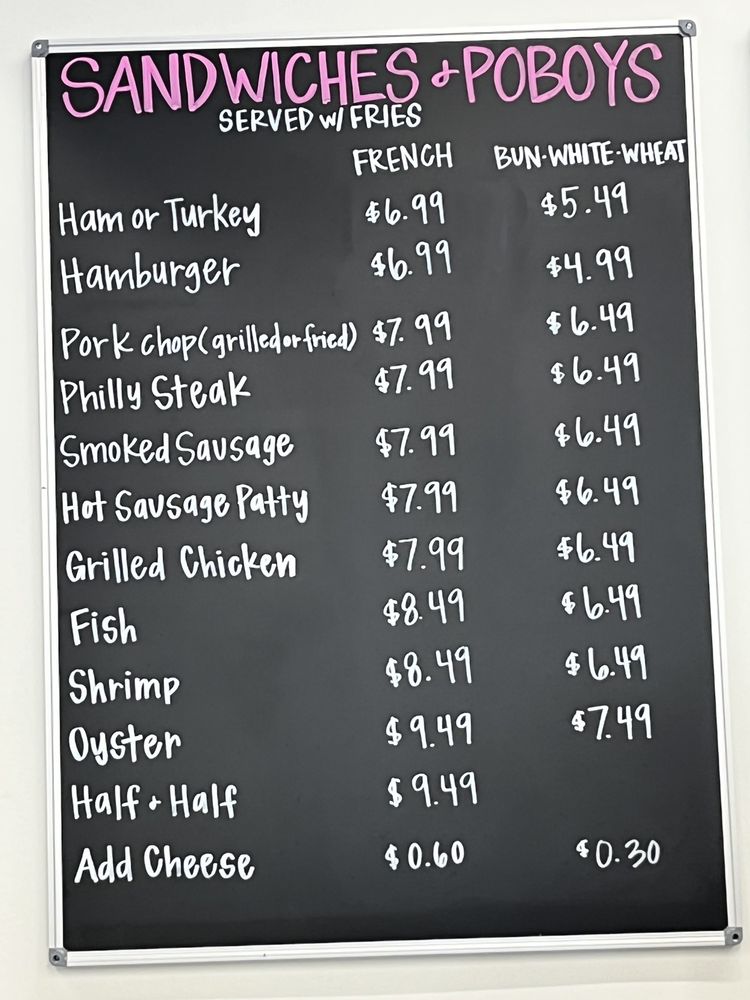 SANDWICHES & POBOYS
SERVED W/ FRIES
FRENCH BUN-WHITE-WHEAT
Ham or Turkey $6.99 $5.49
Hamburger $6.99 $4.99
Pork chop (grilled or fried) $7.99 $6.49
Philly Steak $7.99 $6.49
Smoked Sausage $7.99 $6.49
Hot Sausage Patty $7.99 $6.49
Grilled Chicken $7.99 $6.49
Fish $8.49 $6.49
Shrimp $8.49 $6.49
Oyster $9.49 $7.49
Half & Half $9.49
Add Cheese $0.60 $0.30